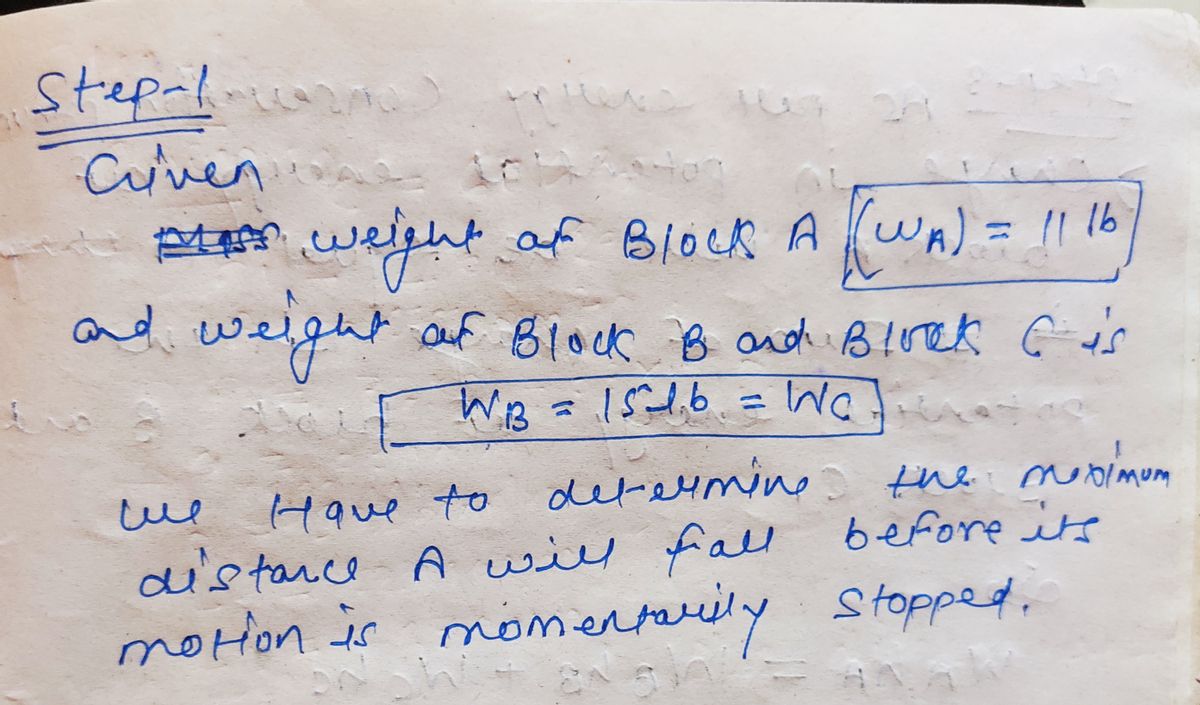 Step-1
Given
weight of Block A (WA) = 11 lb
and weight of Block B and Block C is
WB = 15 lb = WC
we Have to determine the maximum
distance A will fall before its
motion is momentarily stopped.